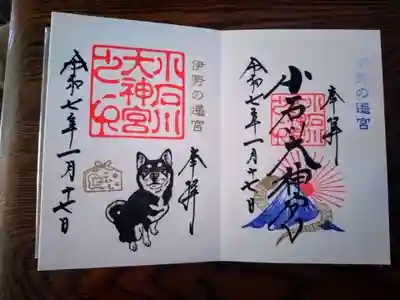 伊勢の遥宮
奉拝
小石川大神宮
小石川大神宮之印
令和七年一月十七日
伊勢の遥宮
奉拝
小石川大神宮之印
令和七年一月十七日